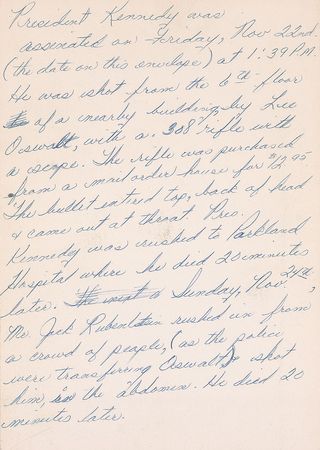 President Kennedy was
assinated on Friday, Nov 22nd.
(the date on this envelope) at 1:39 P.M.
He was shot from the 6th floor
of a nearby building, by Lee
Oswalt, with a .308 rifle with
a scope. The rifle was purchased
from a mailorder house for $12.95
The bullet entired top, back of head
& came out at throat. Pres.
Kennedy was rushed to Parkland
Hospital where he died 20 minutes
later. Sunday, Nov. 24th,
Mr. Jack Rubenstein rushed in from
a crowd of people, (as the police
were transfiring Oswalt) shot
him, in the abdomen. He died 20
minutes later.